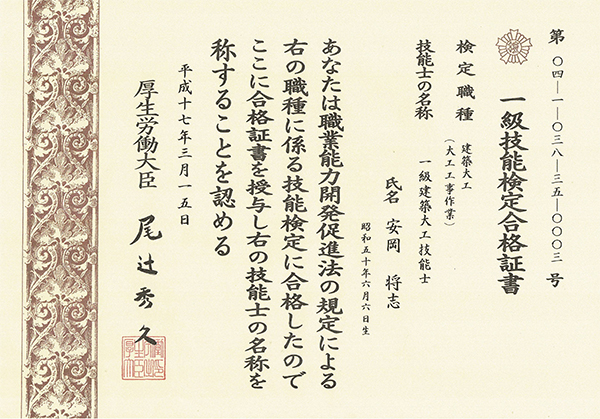 第〇四―一―〇三八―三五―〇〇〇三号
一級技能検定合格証書
検定職種 建築大工
（大工工事作業）
技能士の名称 一級建築大工技能士
氏名 安岡 将志
昭和五十年六月六日生
あなたは職業能力開発促進法の規定による
右の職種に係る技能検定に合格したので
ここに合格証書を授与し右の技能士の名称を
称することを認める
平成十七年三月一五日
厚生労働大臣 尾辻秀久